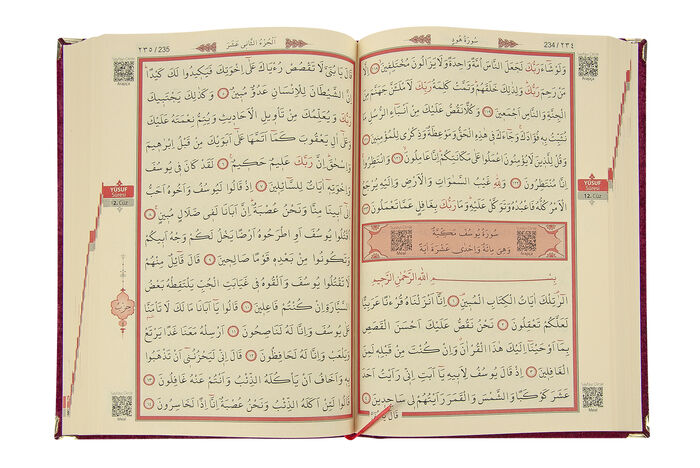 سُورَةُ هُودٍ
234 / ٢٣٤
وَلَوْ شَاءَ رَبُّكَ لَجَعَلَ النَّاسَ اُمَّةً وَاحِدَةً وَلَا يَزَالُونَ مُخْتَلِفِينَ ﴿١١٨﴾
اِلَّا مَنْ رَحِمَ رَبُّكَ وَلِذٰلِكَ خَلَقَهُمْ وَتَمَّتْ كَلِمَةُ رَبِّكَ لَاَمْلَـَٔنَّ جَهَنَّمَ مِنَ
الْجِنَّةِ وَالنَّاسِ اَجْمَعِينَ ﴿١١٩﴾ وَكُلًّا نَقُصُّ عَلَيْكَ مِنْ اَنْبَاءِ الرُّسُلِ مَا
نُثَبِّتُ بِهِ فُؤَادَكَ وَجَاءَكَ فِي هٰذِهِ الْحَقُّ وَمَوْعِظَةٌ وَذِكْرٰى لِلْمُؤْمِنِينَ ﴿١٢٠﴾
وَقُلْ لِلَّذِينَ لَا يُؤْمِنُونَ اعْمَلُوا عَلٰى مَكَانَتِكُمْ اِنَّا عَامِلُونَ ﴿١٢١﴾ وَانْتَظِرُوا
اِنَّا مُنْتَظِرُونَ ﴿١٢٢﴾ وَلِلّٰهِ غَيْبُ السَّمٰوَاتِ وَالْاَرْضِ وَاِلَيْهِ يُرْجَعُ
الْاَمْرُ كُلُّهُ فَاعْبُدْهُ وَتَوَكَّلْ عَلَيْهِ وَمَا رَبُّكَ بِغَافِلٍ عَمَّا تَعْمَلُونَ ﴿١٢٣﴾
سُورَةُ يُوسُفَ مَكِّيَّةٌ
وَهِيَ مِائَةٌ وَاِحْدٰى عَشْرَةَ اٰيَةً
Meal
Arapça
بِسْمِ اللّٰهِ الرَّحْمٰنِ الرَّحِيمِ
الٓرٰ تِلْكَ اٰيَاتُ الْكِتَابِ الْمُبِينِ ﴿١﴾ اِنَّا اَنْزَلْنَاهُ قُرْءٰنًا عَرَبِيًّا
لَعَلَّكُمْ تَعْقِلُونَ ﴿٢﴾ نَحْنُ نَقُصُّ عَلَيْكَ اَحْسَنَ الْقَصَصِ
بِمَا اَوْحَيْنَا اِلَيْكَ هٰذَا الْقُرْاٰنَ وَاِنْ كُنْتَ مِنْ قَبْلِهِ لَمِنَ
الْغَافِلِينَ ﴿٣﴾ اِذْ قَالَ يُوسُفُ لِاَبِيهِ يَا اَبَتِ اِنِّي رَاَيْتُ اَحَدَ
عَشَرَ كَوْكَبًا وَالشَّمْسَ وَالْقَمَرَ رَاَيْتُهُمْ لِي سَاجِدِينَ ﴿٤﴾
قَالَ يَا بُنَيَّ
YUSUF
Sûresi
12. Cüz
Arapça
Meal
اَلْجُزْءُ الثَّانِي عَشَرَ
٢٣٥ / 235
قَالَ يَا بُنَيَّ لَا تَقْصُصْ رُءْيَاكَ عَلٰى اِخْوَتِكَ فَيَكِيدُوا لَكَ كَيْدًا
اِنَّ الشَّيْطَانَ لِلْاِنْسَانِ عَدُوٌّ مُبِينٌ ﴿٥﴾ وَكَذٰلِكَ يَجْتَبِيكَ
رَبُّكَ وَيُعَلِّمُكَ مِنْ تَأْوِيلِ الْاَحَادِيثِ وَيُتِمُّ نِعْمَتَهُ عَلَيْكَ
وَعَلٰى اٰلِ يَعْقُوبَ كَمَا اَتَمَّهَا عَلٰى اَبَوَيْكَ مِنْ قَبْلُ اِبْرٰهِيمَ
وَاِسْحٰقَ اِنَّ رَبَّكَ عَلِيمٌ حَكِيمٌ ﴿٦﴾ لَقَدْ كَانَ فِي يُوسُفَ
وَاِخْوَتِهِ اٰيَاتٌ لِلسَّائِلِينَ ﴿٧﴾ اِذْ قَالُوا لَيُوسُفُ وَاَخُوهُ اَحَبُّ
اِلٰى اَبِينَا مِنَّا وَنَحْنُ عُصْبَةٌ اِنَّ اَبَانَا لَفِي ضَلَالٍ مُبِينٍ ﴿٨﴾
اُقْتُلُوا يُوسُفَ اَوِ اطْرَحُوهُ اَرْضًا يَخْلُ لَكُمْ وَجْهُ اَبِيكُمْ
وَتَكُونُوا مِنْ بَعْدِهِ قَوْمًا صَالِحِينَ ﴿٩﴾ قَالَ قَائِلٌ مِنْهُمْ
لَا تَقْتُلُوا يُوسُفَ وَاَلْقُوهُ فِي غَيَابَتِ الْجُبِّ يَلْتَقِطْهُ بَعْضُ
السَّيَّارَةِ اِنْ كُنْتُمْ فَاعِلِينَ ﴿١٠﴾ قَالُوا يَا اَبَانَا مَا لَكَ لَا تَأْمَنَّا
عَلٰى يُوسُفَ وَاِنَّا لَهُ لَنَاصِحُونَ ﴿١١﴾ اَرْسِلْهُ مَعَنَا غَدًا يَرْتَعْ
وَيَلْعَبْ وَاِنَّا لَهُ لَحَافِظُونَ ﴿١٢﴾ قَالَ اِنِّي لَيَحْزُنُنِي اَنْ تَذْهَبُوا
بِهِ وَاَخَافُ اَنْ يَأْكُلَهُ الذِّئْبُ وَاَنْتُمْ عَنْهُ غَافِلُونَ ﴿١٣﴾
قَالُوا لَئِنْ اَكَلَهُ الذِّئْبُ وَنَحْنُ عُصْبَةٌ اِنَّا اِذًا لَخَاسِرُونَ ﴿١٤﴾
Arapça
YUSUF
Sûresi
12. Cüz
حزب
Meal